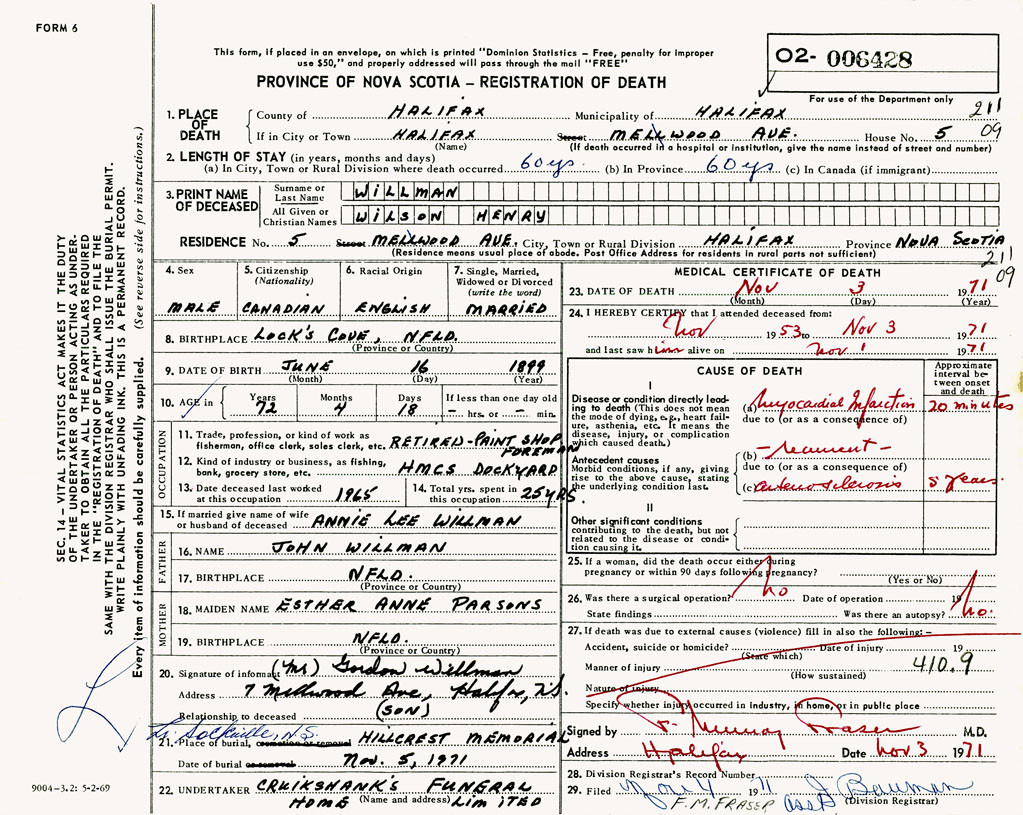 FORM 6
This form, if placed in an envelope, on which is printed "Dominion Statistics – Free, penalty for improper
use $50," and properly addressed will pass through the mail "FREE"
PROVINCE OF NOVA SCOTIA – REGISTRATION OF DEATH
O2- 006428
For use of the Department only
211
09
1. PLACE OF DEATH
County of HALIFAX Municipality of HALIFAX
If in City or Town HALIFAX Street MELLWOOD AVE. House No. 5
(Name) (If death occurred in a hospital or institution, give the name instead of street and number)
2. LENGTH OF STAY (in years, months and days)
(a) In City, Town or Rural Division where death occurred 60 ys. (b) In Province 60 ys (c) In Canada (if immigrant)
3. PRINT NAME OF DECEASED
Surname or Last Name WILLMAN
All Given or Christian Names WILSON HENRY
RESIDENCE No. 5 Street MELLWOOD AVE. City, Town or Rural Division HALIFAX Province NOVA SCOTIA
(Residence means usual place of abode. Post Office Address for residents in rural parts not sufficient)
211
09
4. Sex
MALE
5. Citizenship
(Nationality)
CANADIAN
6. Racial Origin
ENGLISH
7. Single, Married,
Widowed or Divorced
(write the word)
MARRIED
8. BIRTHPLACE LOCK'S COVE, NFLD.
(Province or Country)
9. DATE OF BIRTH JUNE 16 1899
(Month) (Day) (Year)
10. AGE in Years Months Days If less than one day old
72 4 18 – hrs. or – min.
OCCUPATION
11. Trade, profession, or kind of work as
fisherman, office clerk, sales clerk, etc. RETIRED-PAINT SHOP
FOREMAN
12. Kind of industry or business, as fishing,
bank, grocery store, etc. HMCS DOCKYARD
13. Date deceased last worked
at this occupation 1965
14. Total yrs. spent in
this occupation 25 YRS
15. If married give name of wife
or husband of deceased ANNIE LEE WILLMAN
FATHER
16. NAME JOHN WILLMAN
17. BIRTHPLACE NFLD.
(Province or Country)
MOTHER
18. MAIDEN NAME ESTHER ANNE PARSONS
19. BIRTHPLACE NFLD.
(Province or Country)
20. Signature of informant (Mr) Gordon Willman
Address 7 Mellwood Ave, Halifx, N.S.
Relationship to deceased (SON)
Sackville, N.S.
21. Place of burial, cremation or removal HILLCREST MEMORIAL
Date of burial or removal Nov. 5, 1971
22. UNDERTAKER CRUIKSHANK'S FUNERAL
HOME (Name and address) LIMITED
MEDICAL CERTIFICATE OF DEATH
23. DATE OF DEATH Nov 3 1971
(Month) (Day) (Year)
24. I HEREBY CERTIFY that I attended deceased from:
Nov 1953 to Nov 3 1971
and last saw him alive on Nov 1 1971
CAUSE OF DEATH
Approximate
interval be-
tween onset
and death
I
Disease or condition directly lead-
ing to death (This does not mean
the mode of dying, e.g., heart fail-
ure, asthenia, etc. It means the
disease, injury, or complication
which caused death.)
(a) Myocardial Infarction 20 minutes
due to (or as a consequence of)
Antecedent causes
Morbid conditions, if any, giving
rise to the above cause, stating
the underlying condition last.
(b) – recurrent –
due to (or as a consequence of)
(c) arteriosclerosis 5 years.
II
Other significant conditions
contributing to the death, but not
related to the disease or condi-
tion causing it.
25. If a woman, did the death occur either during
pregnancy or within 90 days following pregnancy?
(Yes or No)
26. Was there a surgical operation? no Date of operation 19
State findings Was there an autopsy? no.
27. If death was due to external causes (violence) fill in also the following: –
Accident, suicide or homicide? Date of injury 19
(State which)
Manner of injury 410.9
(How sustained)
Nature of injury
Specify whether injury occurred in industry, in home, or in public place
Signed by F. Murray Fraser M.D.
Address Halifax Date Nov 3 1971
28. Division Registrar's Record Number
29. Filed Nov 4 1971 J Bauman
F.M. FRASER Asst (Division Registrar)
SEC. 14 – VITAL STATISTICS ACT MAKES IT THE DUTY
OF THE UNDERTAKER OR PERSON ACTING AS UNDER-
TAKER TO OBTAIN ALL THE PARTICULARS REQUIRED
IN THE "REGISTRATION OF DEATH" AND TO FILE THE
SAME WITH THE DIVISION REGISTRAR WHO SHALL ISSUE THE BURIAL PERMIT.
WRITE PLAINLY WITH UNFADING INK. THIS IS A PERMANENT RECORD.
Every item of information should be carefully supplied. (See reverse side for instructions.)
9004-3.2: 5-2-69